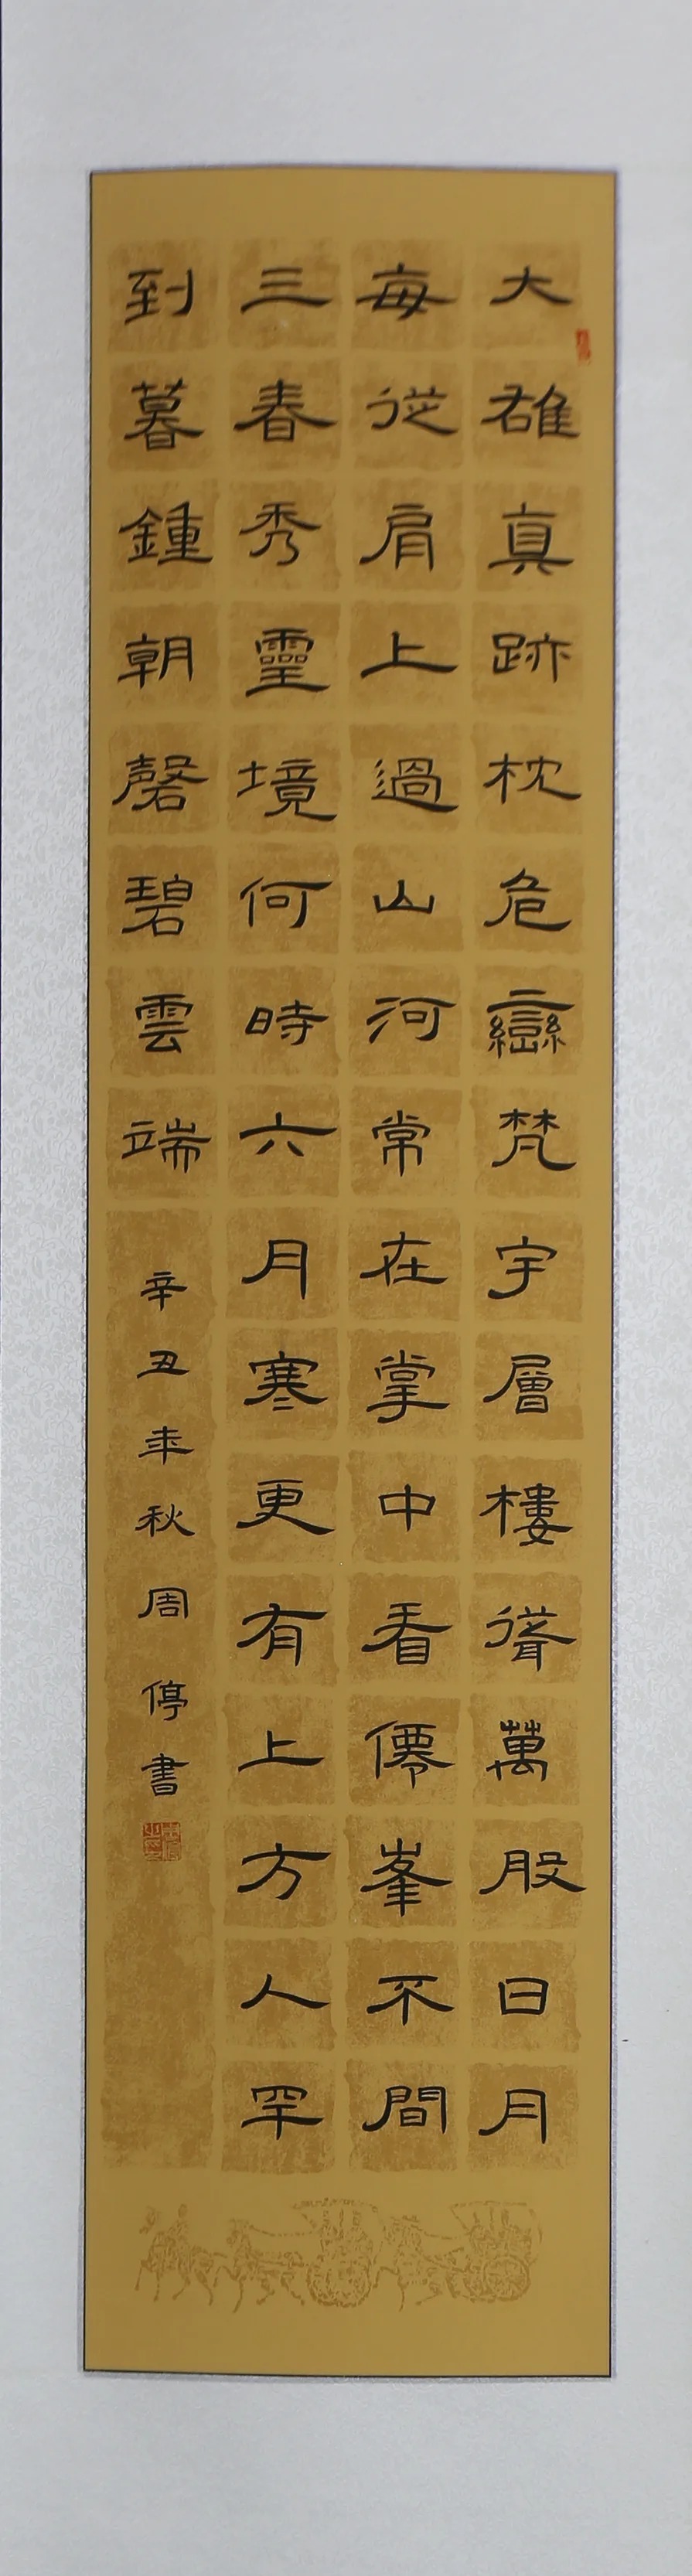 大雄真跡枕危巒梵宇層樓聳萬般日月
每從肩上過山河常在掌中看僊峯不間
三春秀靈境何時六月寒更有上方人罕
到暮鍾朝磬碧雲端
辛丑年秋周停書